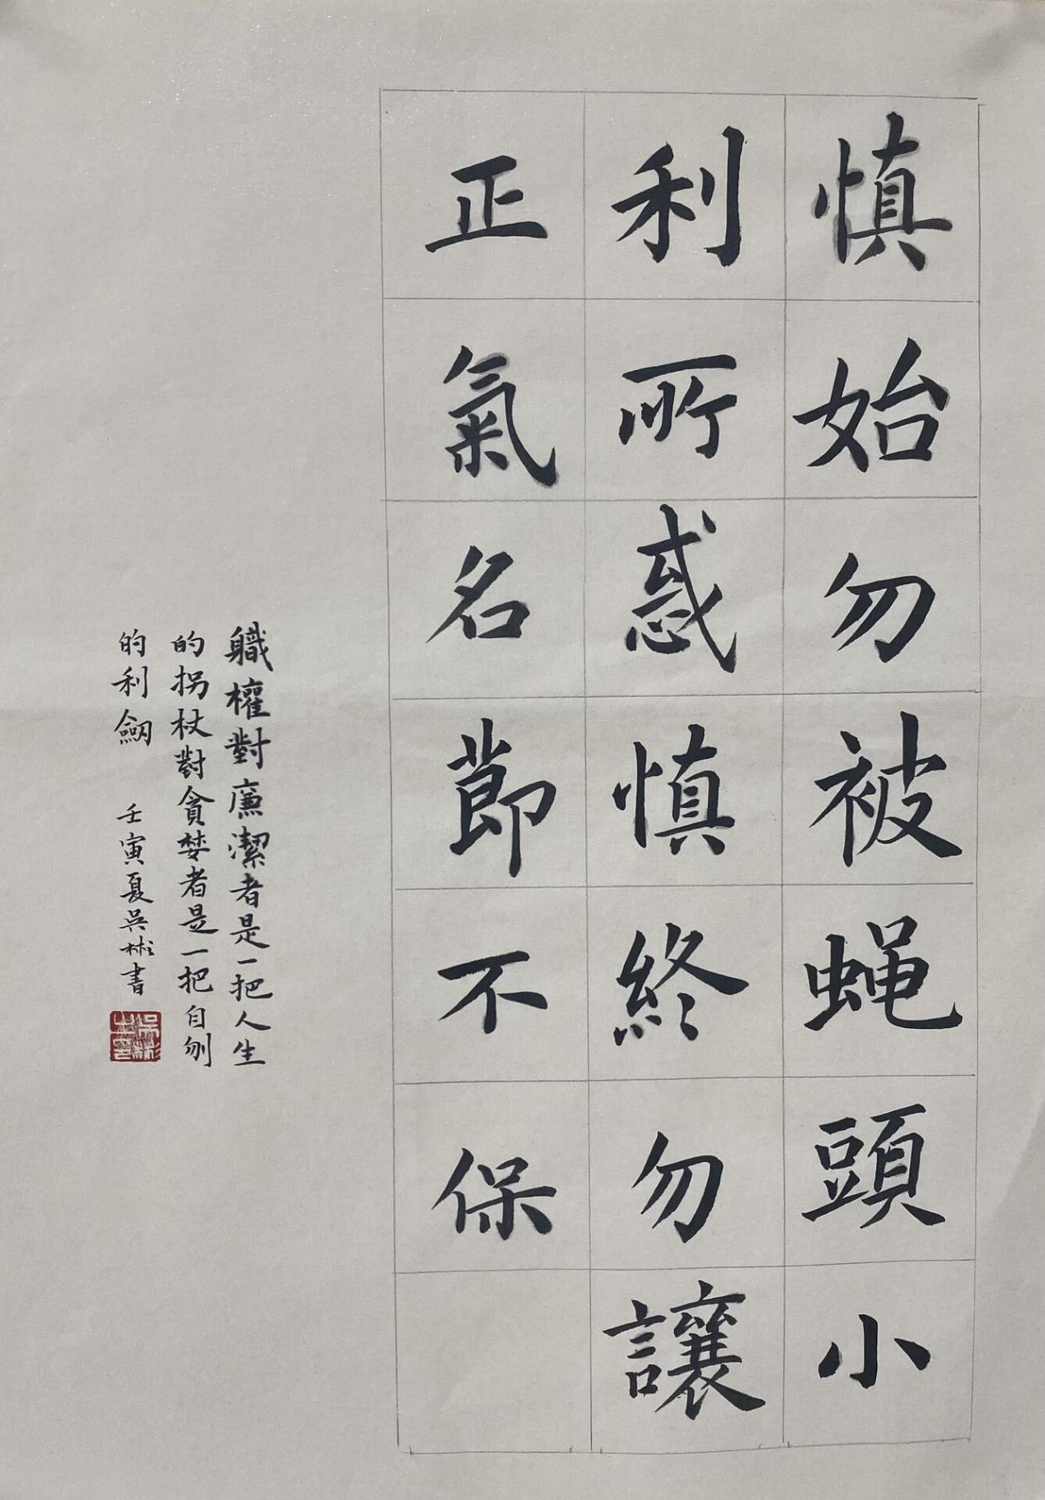 慎始勿被蝇頭小
利所惑慎終勿讓
正氣名節不保
職權對廉潔者是一把人生
的拐杖對貪婪者是一把自刎
的利劒
壬寅夏吳彬書